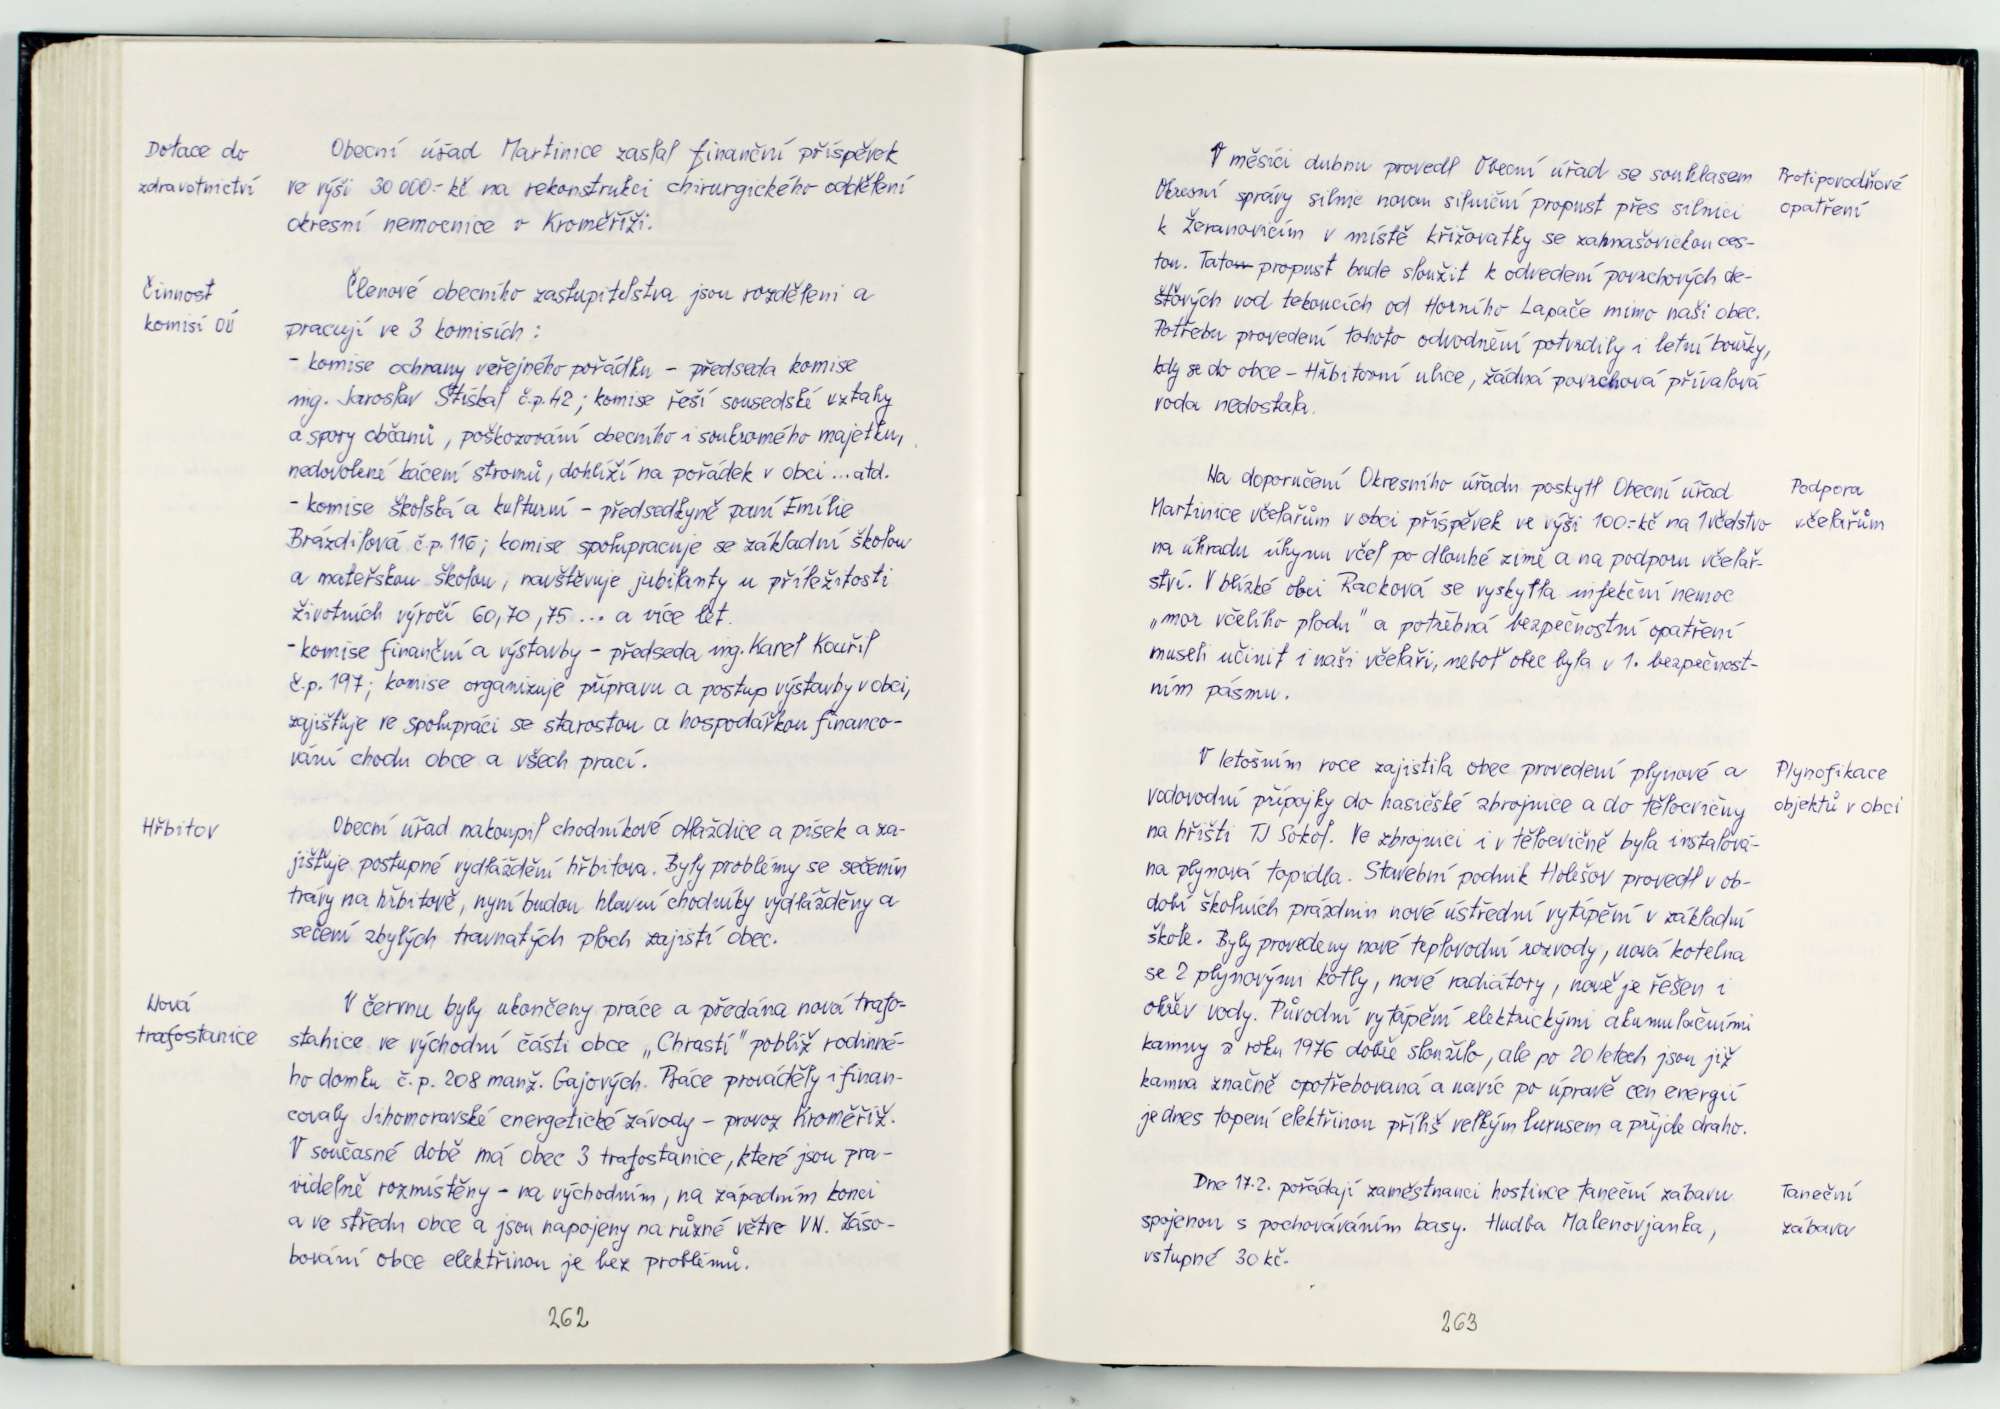 Dotace do
zdravotnictví
Obecní úřad Martinice zaslal finanční příspěvek
ve výši 30 000.- kč na rekonstrukci chirurgického oddělení
okresní nemocnice v Kroměříži.
Činnost
komisí OÚ
Členové obecního zastupitelstva jsou rozděleni a
pracují ve 3 komisích :
- komise ochrany veřejného pořádku – předseda komise
ing. Jaroslav Stískal č.p. 42 ; komise řeší sousedské vztahy
a spory občanů , poškozování obecního i soukromého majetku,
nedovolené kácení stromů, dohlíží na pořádek v obci ... atd.
- komise školská a kulturní – předsedkyně paní Emílie
Brázdilová č.p. 116 ; komise spolupracuje se základní školou
a mateřskou školou , navštěvuje jubilanty u příležitosti
životních výročí 60, 70 , 75 ... a více let.
- komise finanční a výstavby – předseda ing. Karel Kouřil
č.p. 197 ; komise organizuje přípravu a postup výstavby v obci,
zajišťuje ve spolupráci se starostou a hospodářkou financo-
vání chodu obce a všech prací.
Hřbitov
Obecní úřad nakoupil chodníkové dlaždice a písek a za-
jišťuje postupné vydláždění hřbitova. Byly problémy se sečením
trávy na hřbitově, nyní budou hlavní chodníky vydlážděny a
sečení zbylých travnatých ploch zajistí obec.
Nová
trafostanice
V červnu byly ukončeny práce a předána nová trafo-
stanice ve východní části obce „Chrastí" poblíž rodinné-
ho domku č.p. 208 manž. Gajových. Práce prováděly i finan-
covaly Jihomoravské energetické závody – provoz Kroměříž.
V současné době má obec 3 trafostanice, které jsou pra-
videlně rozmístěny – na východním, na západním konci
a ve středu obce a jsou napojeny na různé větve VN. Záso-
bování obce elektřinou je bez problémů.
262
V měsíci dubnu provedl Obecní úřad se souhlasem
Okresní správy silnic novou silniční propust přes silnici
k Žeranovicím v místě křižovatky se zahnašovickou ces-
tou. Tato propust bude sloužit k odvedení povrchových de-
šťových vod tekoucích od Horního Lapače mimo naši obec.
Potřebu provedení tohoto odvodnění potvrdily i letní bouřky,
kdy se do obce – Hřbitovní ulice, žádná povrchová přívalová
voda nedostala.
Protipovodňové
opatření
Na doporučení Okresního úřadu poskytl Obecní úřad
Martinice včelařům v obci příspěvek ve výši 100.- kč na 1 včelstvo
na úhradu úhynu včel po dlouhé zimě a na podporu včelař-
ství. V blízké obci Racková se vyskytla infekční nemoc
„mor včelího plodu" a potřebná bezpečnostní opatření
museli učinit i naši včelaři, neboť obec byla v 1. bezpečnost-
ním pásmu.
Podpora
včelařům
V letošním roce zajistila obec provedení plynové a
vodovodní přípojky do hasičské zbrojnice a do tělocvičny
na hřišti TJ Sokol. Ve zbrojnici i v tělocvičně byla instalová-
na plynová topidla. Stavební podnik Holešov provedl v ob-
dobí školních prázdnin nové ústřední vytápění v základní
škole. Byly provedeny nové teplovodní rozvody , nová kotelna
se 2 plynovými kotly, nové radiátory , nově je řešen i
ohřev vody. Původní vytápění elektrickými akumulačními
kamny z roku 1976 dobře sloužilo, ale po 20 letech jsou již
kamna značně opotřebovaná a navíc po úpravě cen energií
je dnes topení elektřinou příliš velkým luxusem a přijde draho.
Plynofikace
objektů v obci
Dne 17.2. pořádají zaměstnanci hostince taneční zábavu
spojenou s pochováváním basy. Hudba Malenovjanka ,
vstupné 30 kč.
Taneční
zábava
263